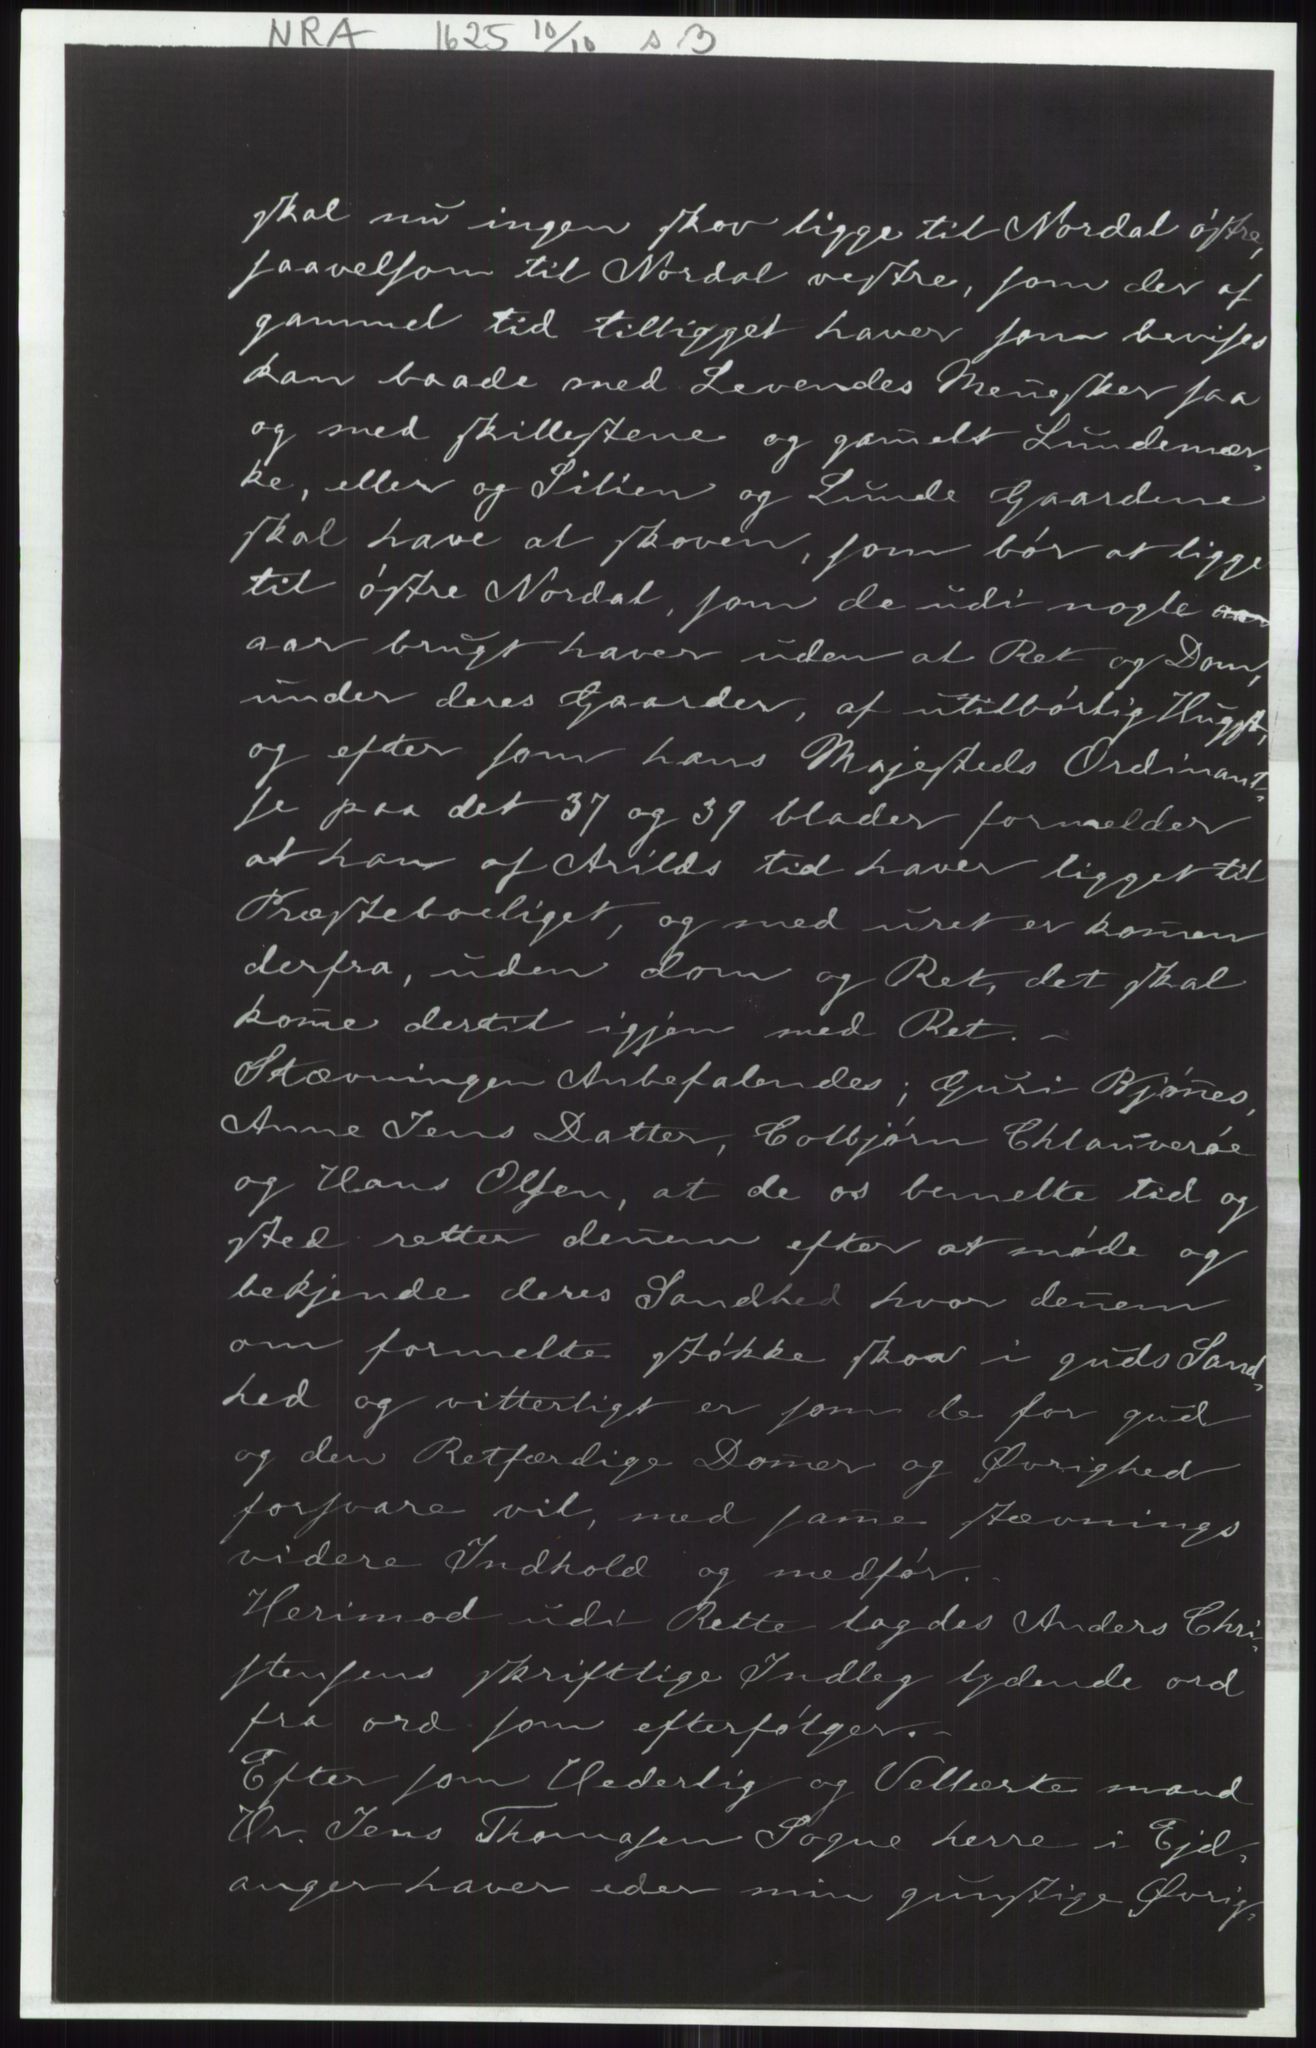 NRA 1625 10/10 s 3
skal nu ingen skov ligge til Nordal østre,
saavelsom til Nordal vestre, som der af
gammel tid tilligget haver som bevises
kan baade med Levendes Meñesker saa
og med skillestene og gam̃elt Lundemær-
ke, eller og Lilien og Lunde Gaardene
skal have at skoven, som bør at ligge
til østre Nordal, som de udi nogle
aar brugt haver uden at Ret og Dom,
under deres Gaarder, af utilbørlig Hugst,
og efter som hans Majesteds Ordinant-
se paa det 37 og 39 blader formelder
at han af Arilds tid haver ligget til
Præsteboeliget, og med uret er kom̃en
derfra, uden dom og Ret, det skal
kom̃e dertil igjen med Ret. -
Stævningen Anbefalendes; Guri Bjøñes,
Anne Jens Datter, Colbjørn Chlauverøe
og Hans Olsen, at de os bemelte tid og
sted retter deñem efter at møde og
bekjende deres Sandhed hvor deñem
om formelte støkke skov i guds Sand-
hed og vitterligt er som de for gud
og den Retfærdige Dom̃er og Øvrighed
forsvare vil, med sam̃e stævnings
videre Indhold og medfør. -
Herimod udi Rette lagdes Anders Chri-
stensens skriftlige Indleg lydende ord
fra ord som efterfølger. -
Efter som Hederlig og Vellærte mand
Hr. Jens Thomasen Sogne herre i Ejd-
anger haver eder min gunstige Øvrig-